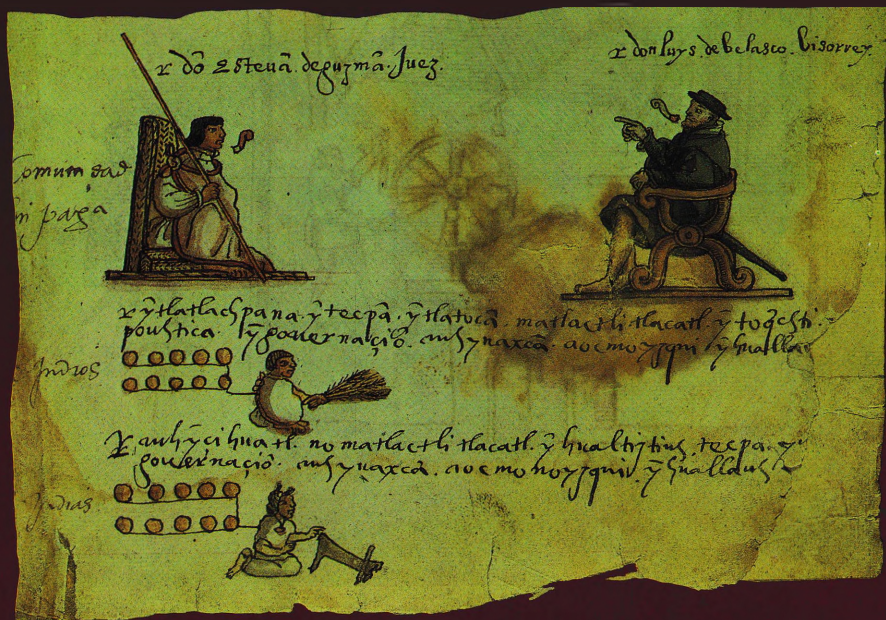 r dõ Esteuã. deguzmã. Juez.
r don luys. de belasco. bisorrey.
Comunidad
paga
r ỹtlatlachpana. ỹ tecpã. ỹ tlatocã. matlactli tlacatl. ỹ
pouhtica. ỹ gouernaçiõ. auh ynaxcã. aocmo yzqui ỹ huallā
Indios
auh ỹ cihuatl. no matlactli tlacatl. ỹ hualtiytius. tecpa. ỹ
gouernaçiõ. auh ynaxcã. aocmo no yzqui. ỹ huallauh
Indias